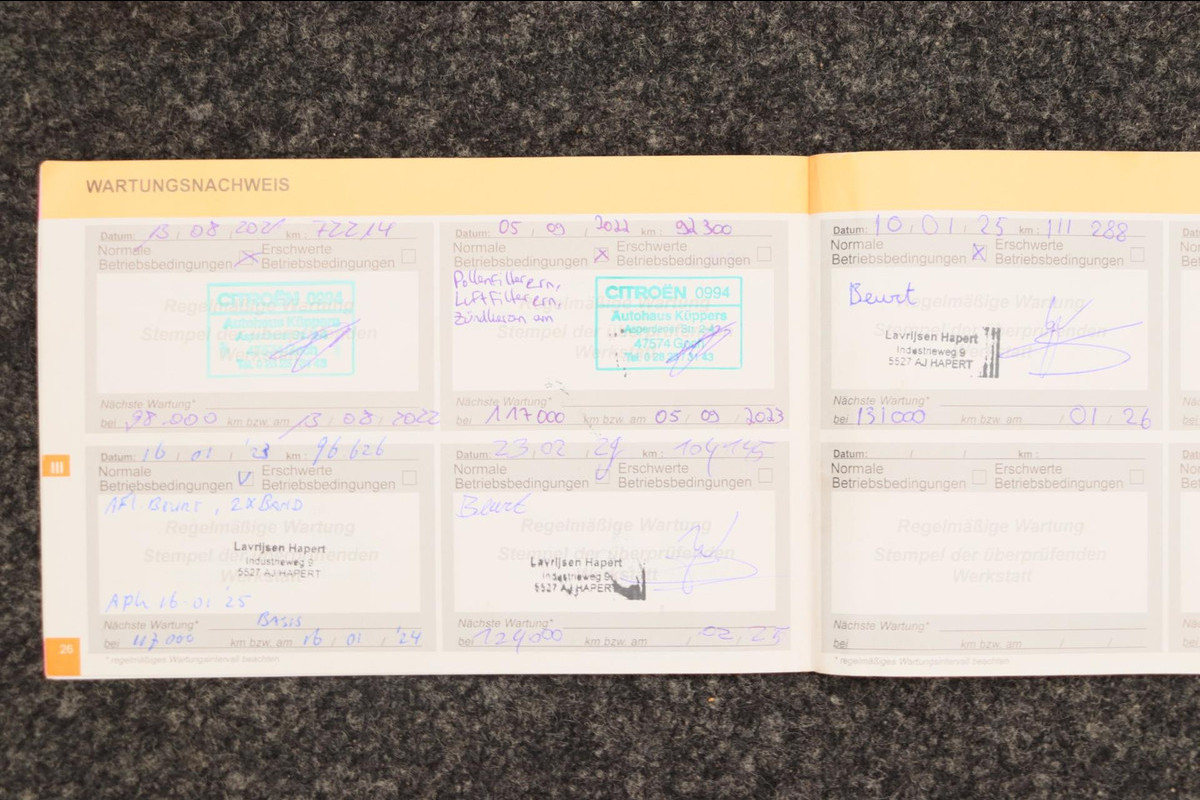 WARTUNGSNACHWEIS
Datum: 13 08 2021 km: 72214
Normale Betriebsbedingungen X Erschwerte Betriebsbedingungen
Regelmäßige Wartung
Stempel der überprüfenden
CITROËN 0994
Autohaus Küppers
Nächste Wartung*
bei 98.000 km bzw. am 13 08 2022
Datum: 05 09 2022 km: 92300
Normale Betriebsbedingungen X Erschwerte Betriebsbedingungen
Pollenfilter ern,
Luftfilter ern,
Zündkerzen ern
CITROËN 0994
Autohaus Küppers
Asperdener Str. 2-4
47574 Goch
Nächste Wartung*
bei 117000 km bzw. am 05 09 2023
Datum: 16 01 '23 km: 96626
Normale Betriebsbedingungen V Erschwerte Betriebsbedingungen
Beurt, 2x Band
Regelmäßige Wartung
Stempel der überprüfenden
Lavrijsen Hapert
Industrieweg 9
5527 AJ HAPERT
APK 16-01 '25
Nächste Wartung* Basis
bei 117000 km bzw. am 16 / 01 / '24
* regelmäßiges Wartungsintervall beachten
Datum: 23 02 24 km: 104145
Normale Betriebsbedingungen Erschwerte Betriebsbedingungen
Beurt
Regelmäßige Wartung
Stempel der überprüfenden
Lavrijsen Hapert
Industrieweg 9
5527 AJ HAPERT
Nächste Wartung*
bei 124000 km bzw. am / 02 / 25
Datum: 10 / 01 / 25 km: 111 288
Normale Betriebsbedingungen X Erschwerte Betriebsbedingungen
Beurt
Lavrijsen Hapert
Industrieweg 9
5527 AJ HAPERT
Nächste Wartung*
bei 131000 km bzw. am / 01 / 26
Datum: / / km:
Normale Betriebsbedingungen Erschwerte Betriebsbedingungen
Regelmäßige Wartung
Stempel der überprüfenden
Werkstatt
Nächste Wartung*
bei km bzw. am / /
* regelmäßiges Wartungsintervall beachten
III
26